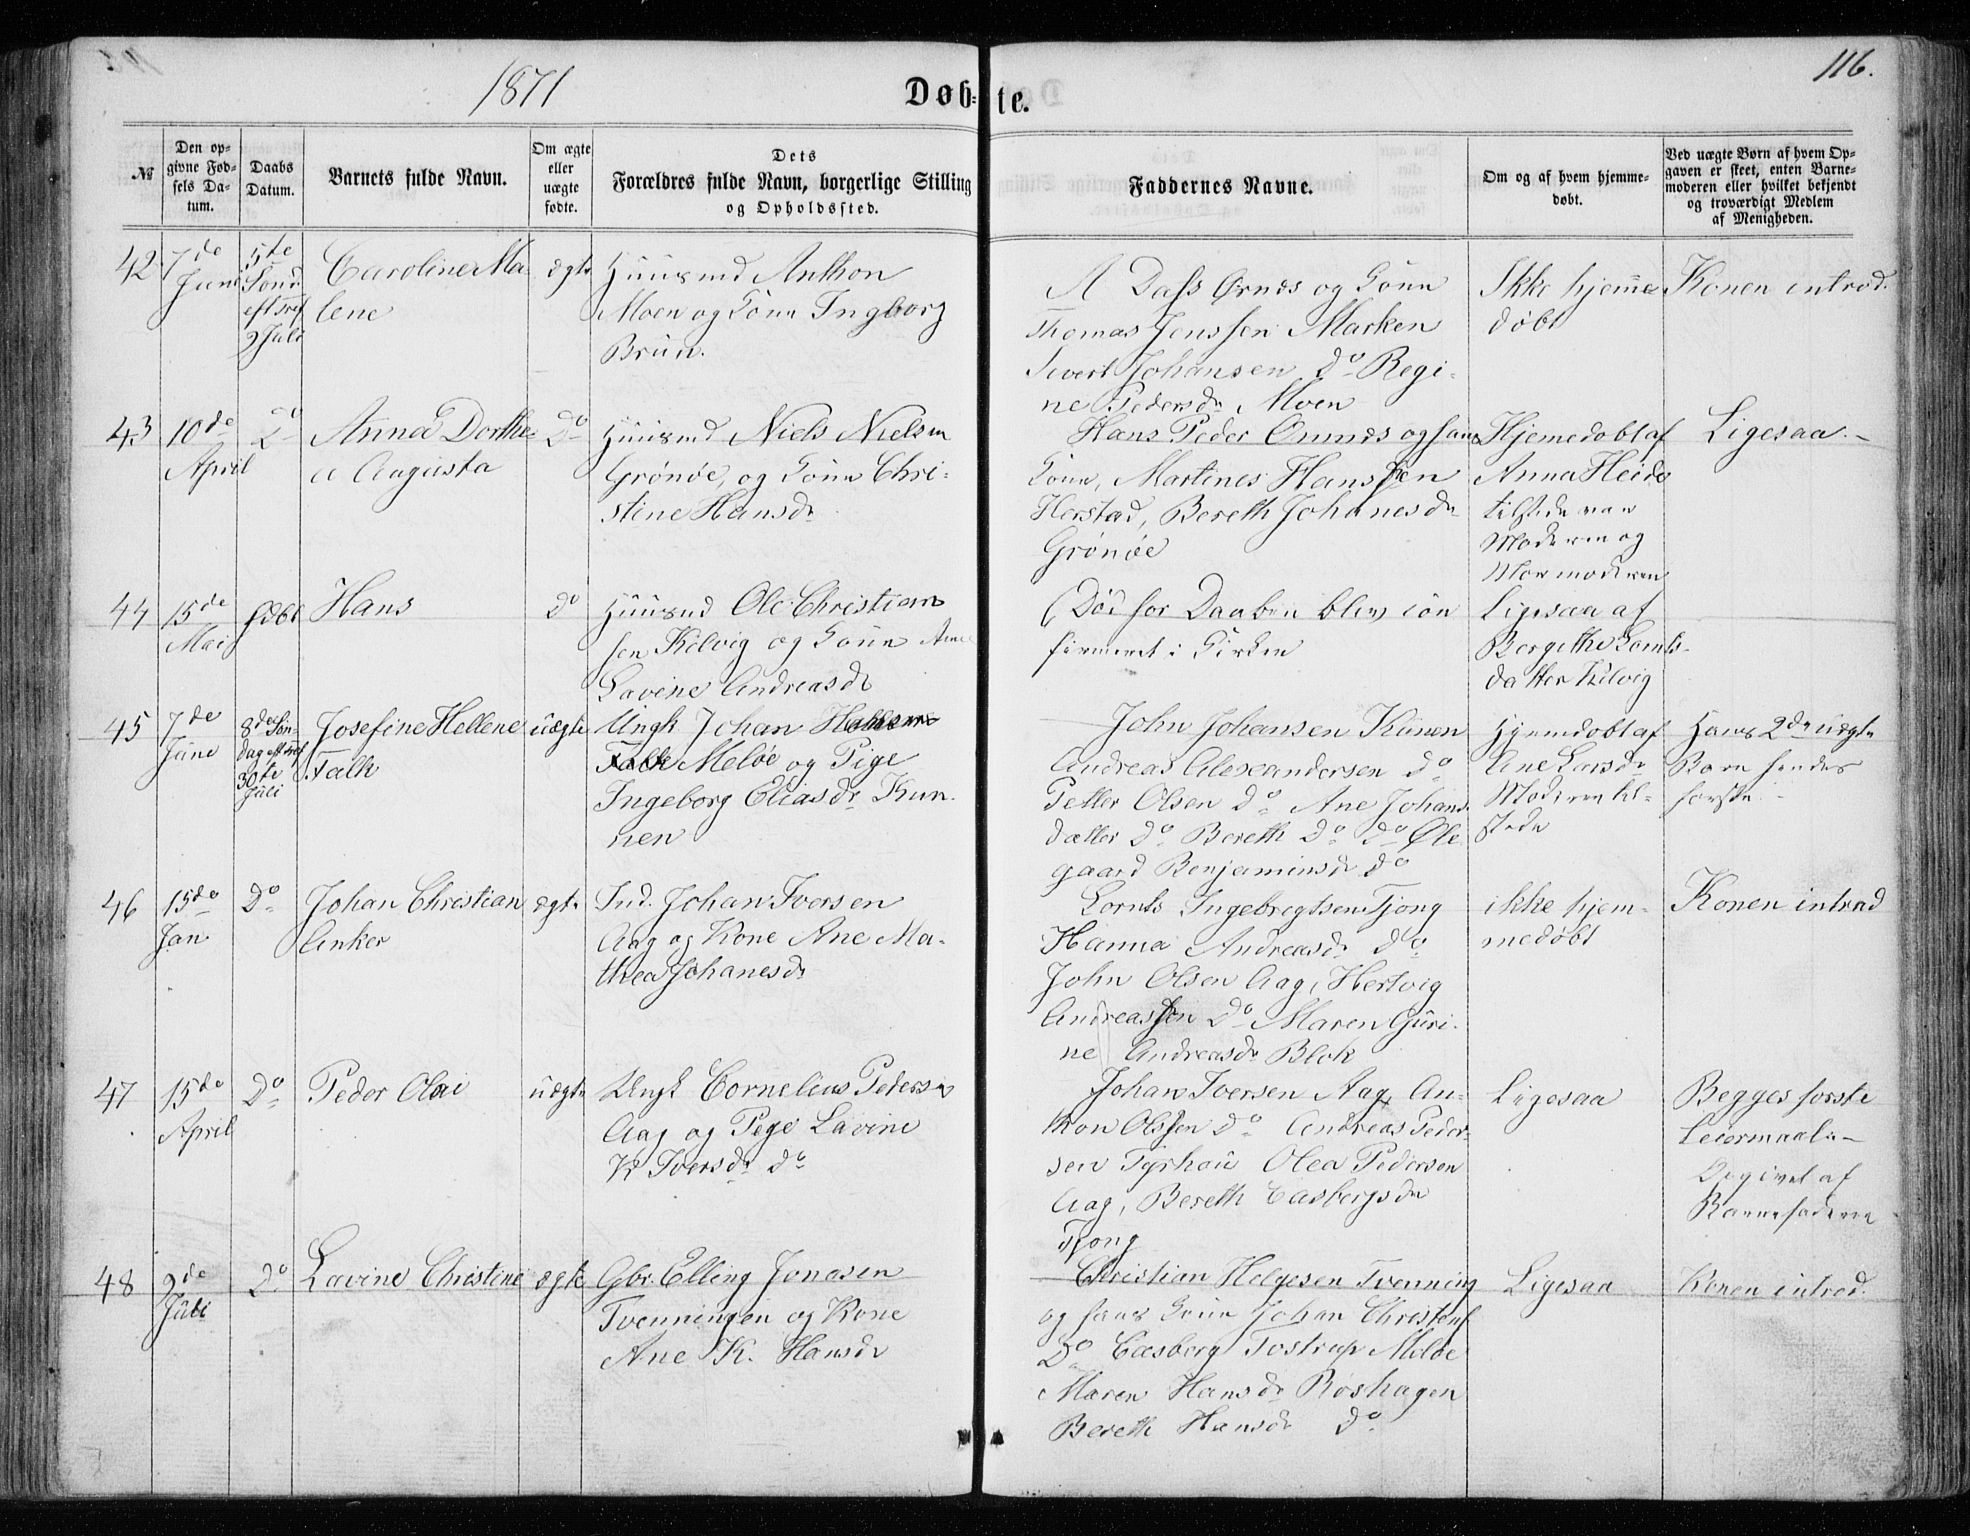 1871
Døb-
te.
116.
№
Den op-
givne Fød-
sels Da-
tum.
Daabs
Datum.
Barnets fulde Navn.
Om ægte
eller
uægte
fødte.
Dets
Forældres fulde Navn, borgerlige Stilling
og Opholdssted.
Faddernes Navne.
Om og af hvem hjemme-
døbt.
Ved uægte Børn af hvem Op-
gaven er skeet, enten Barne-
moderen eller hvilket bekjendt
og troværdigt Medlem
af Menigheden.
42
7de
Juni
5te
Sønd
eft Tref
9 Juli
Caroline Ma-
lene
ægte
Huusmd Anthon
Moen og Konn Ingborg
Brun.
A Dass Ørnes og Konn
Thomas Jenssen Marken
Sivert Johansen Do Regi-
ne Pedersdr Moen
Ikke hjemme
døbt
Konen introd.
43
10de
April
Do
Anna Dorthe-
a Augusta
Do
Huusmd Niels Nielsen
Grönöe, og Konn Chri-
stine Hansdr
Hans Peder Ønnes og hans
Konn, Martines Hanssen
Herstad, Bereth Johanesdr
Grönöe
Hjemedøbt af
Anna Heide
tilstede var
Moderen og
Mormoderen
Ligesaa.-
44
15de
Mai
Hans
Do
Huusmd Ole Christian
sen Kilvig og Konn Ane
Lavine Andreasdr
(Död for Daaben blev con
firmeret i Kirken
Ligesaa af
Bergithe
datter Kilvig
45
7de
June
8de Sön-
dag
30te
Juli
Josefine Hellene
Falk
uægte
Ungk Johan
Meløe og Pige
Ingeborg Eliasdr Kun-
nen
John Johansen Kunen
Andreas Alexandersen Do
Petter Olsen Do Ane Johans-
datter Do Bereth Do Do Øle-
gaard Benjaminsdr Do
Hjemdøbt af
Ane Larsdr
Moderen til-
stede
Hans 2de uægte
Barn hendes
første -
46
15de
Jan
Do
Johan Christian
Anker
ægte
Ind. Johan Iversen
Aag og Kone Ane Ma-
thea Johanesdr
Lornts Ingebregtsen Tjong
Hanna Andreasdr Do
John Olsen Aag, Hertvig
Andreassen Do Maren Guri-
ne Andreasdr Blok
ikke hjem-
medøbt
Konen introd
47
15de
April
Do
Peder Olai
uægte
Ungk Cornelius Pedersen
Aag og Pige Lavine
K Iversdr Do
Johan Iversen Aag, An-
thon Olssen Do Andreas Peder-
sen Tyrhau Olea Pedersen
Aag, Bereth Casbergsdr
Tjong
Ligesaa
Begges første
Leiermaal.-
Opgivet af
Barnefaderen
48
2de
Juli
Do
Lavine Christine
ægte
Gbr. Elling Jonasen
Tvenningen og Kone
Ane K. Hansdr
Christian Helgesen Tvenning
og hans Konn Johan Christens
Do Casberg Tostrup Meløe
Maren Hansdr Roshagen
Bereth Hansdr Do
Ligesaa
Konen introd.